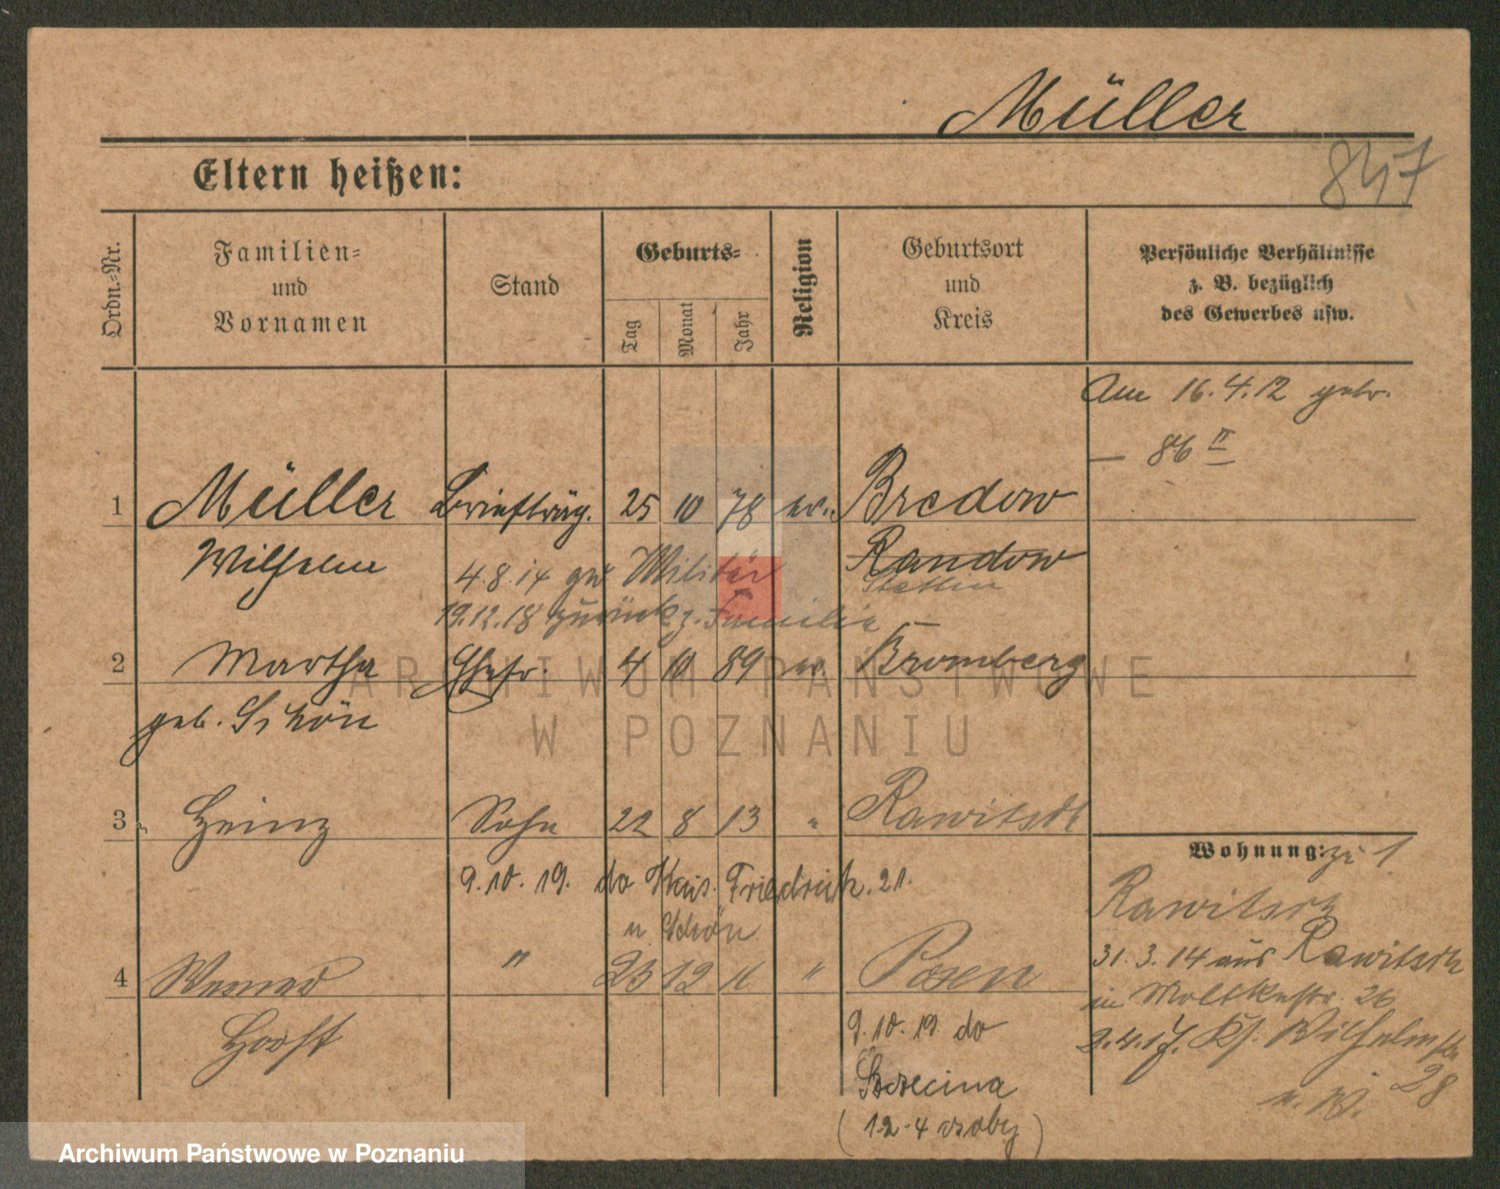 Müller
847
Eltern heißen:
Ordn.-Nr.
Familien-
und
Vornamen
Stand
Geburts-
Tag
Monat
Jahr
Religion
Geburtsort
und
Kreis
Persönliche Verhältnisse
z. B. bezüglich
des Gewerbes usw.
Am 16.4.12 getr.
— 86 II
1 Müller Briefträg. 25 10 78 ev. Bredow
Wilhelm Randow
Stettin
4.8.14 zum Militär
19.12.18 zurück z. Familie
2 Martha Ehefr. 4 10 89 ev. Bromberg
geb. Schön
3 Heinz Sohn 22 8 13 " Rawitsch
9.10.19. do Kais. Friedrich. 21.
u Schön
4 Werner " 23 12 16 " Posen
Horst
9.10.19 do
Szczecina
(12-4 osoby)
Wohnung: zu 1
Rawitsch
31.3.14 aus Rawitsch
in Moltkestr. 26
2.4.17. Kl. Wilhelmstr
28
Archiwum Państwowe
w Poznaniu
Archiwum Państwowe w Poznaniu